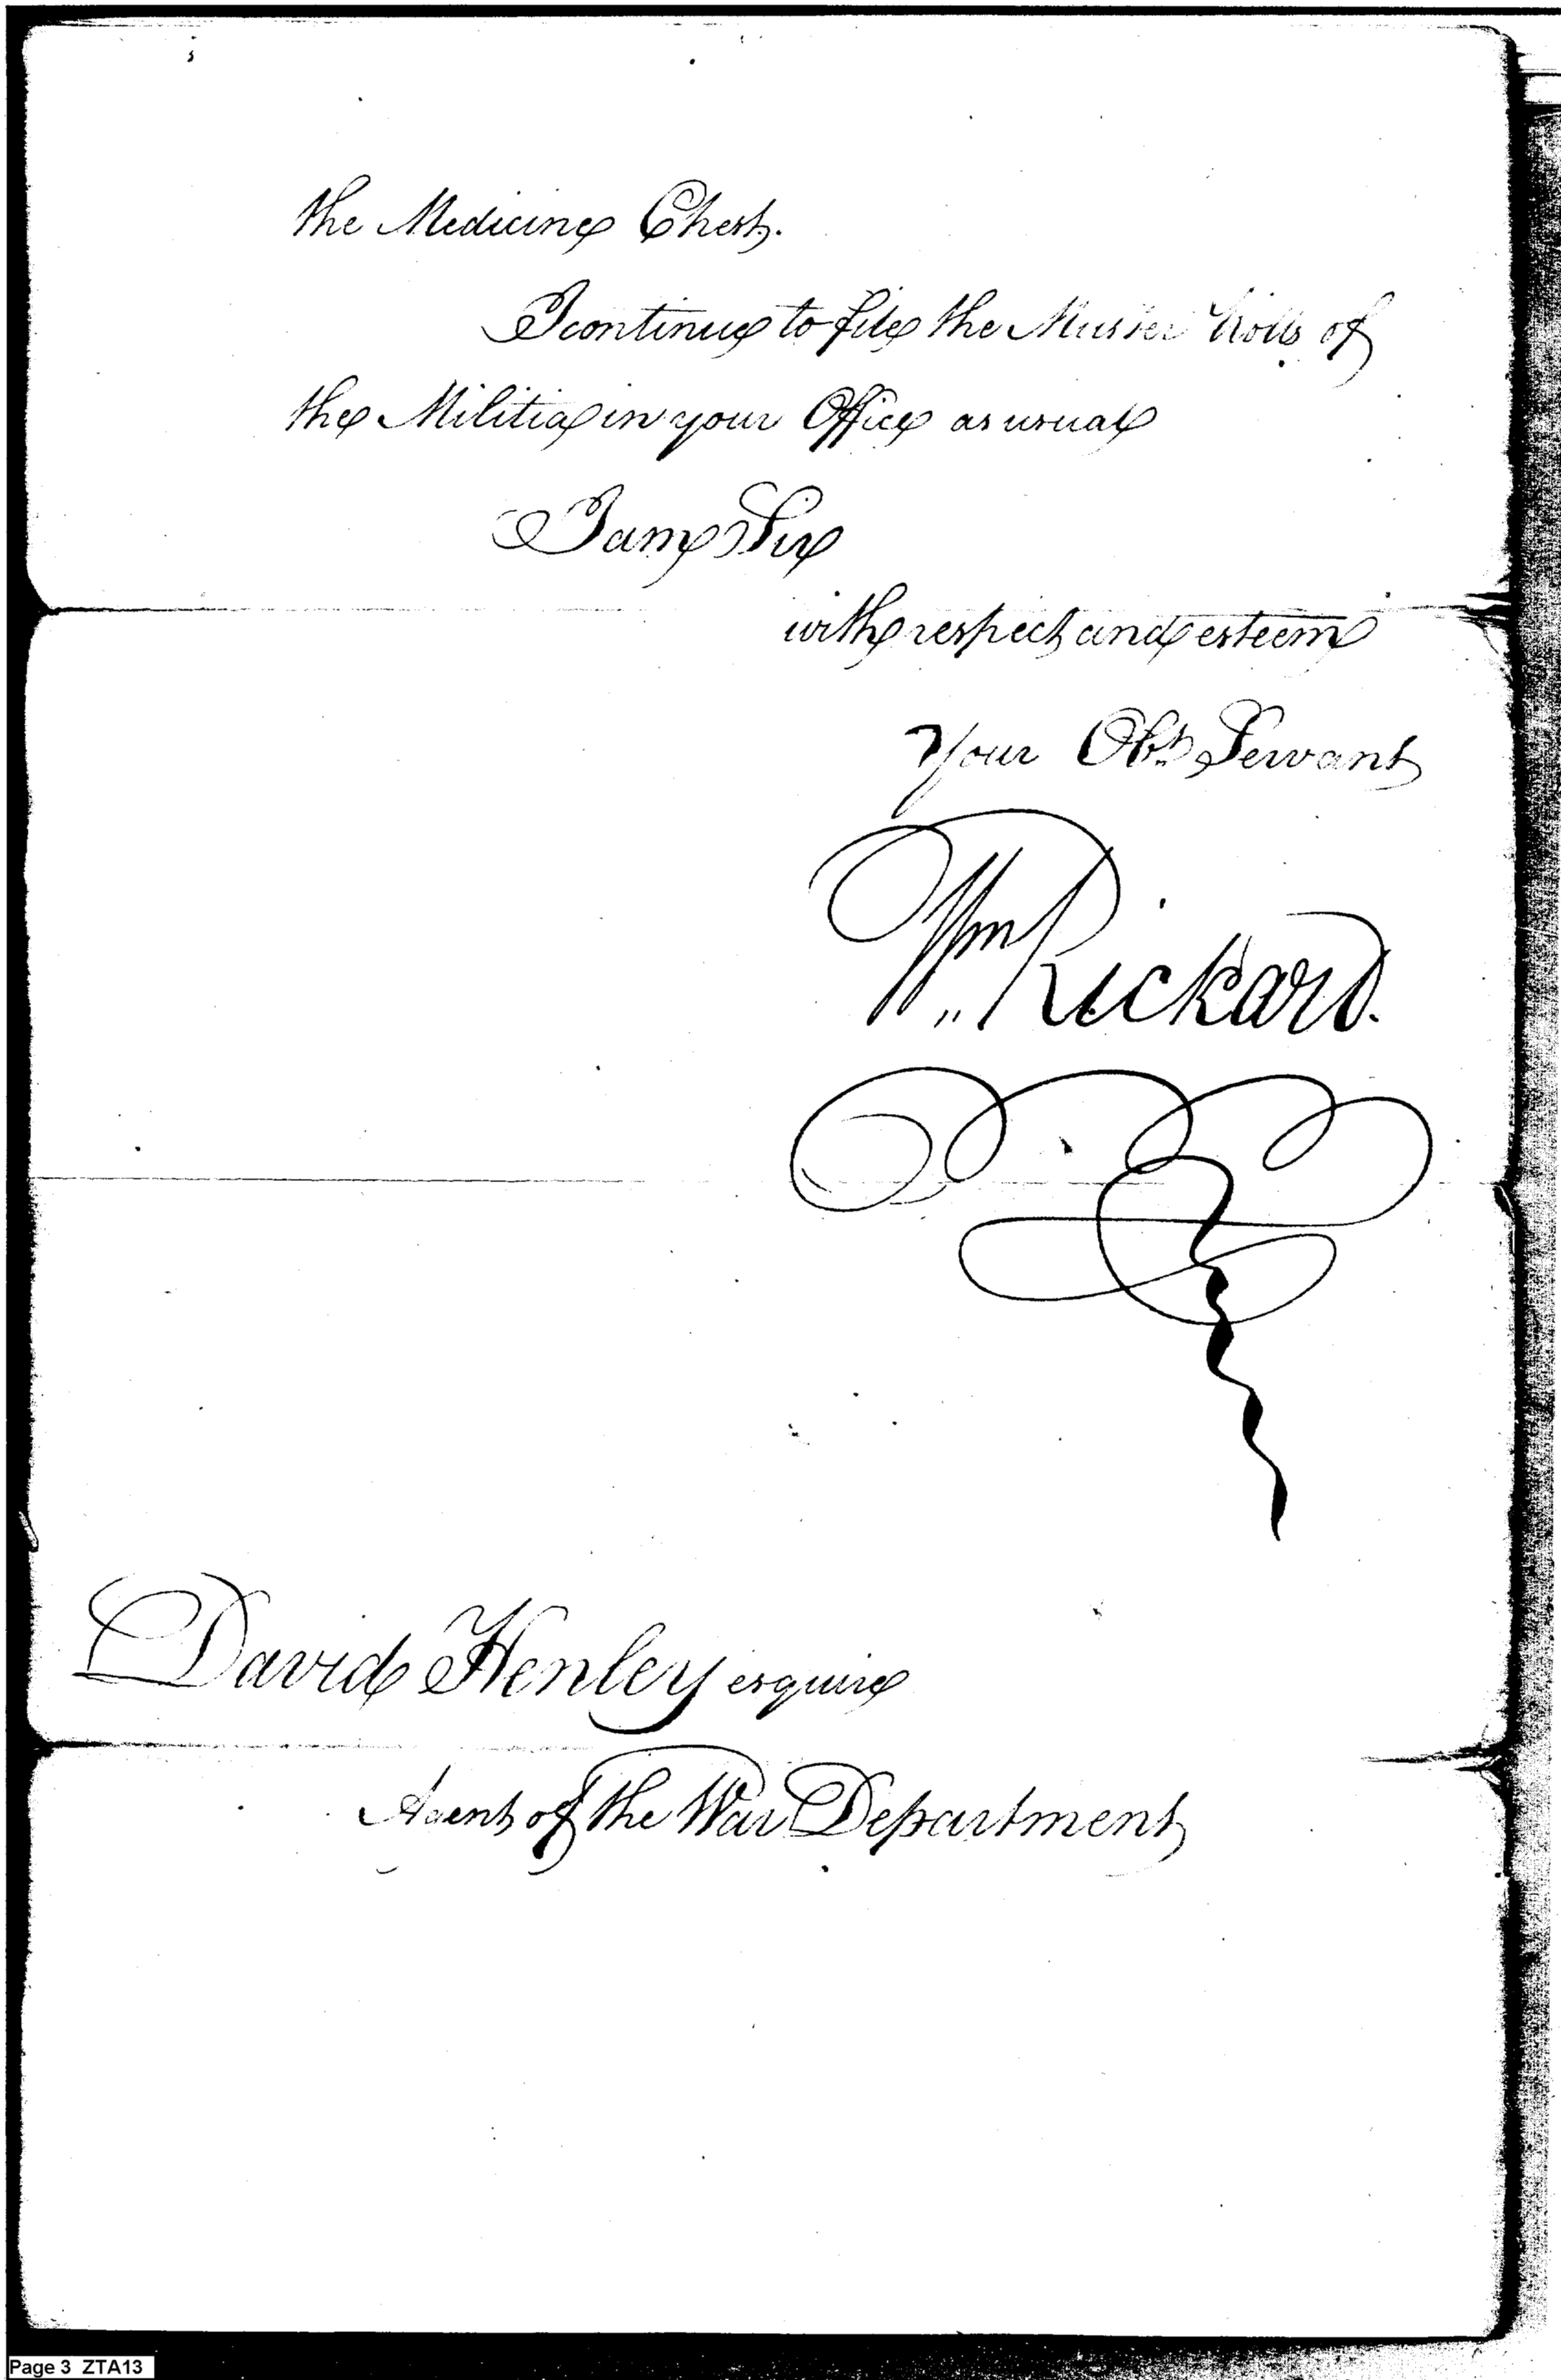 the Medicine Chest.
I continue to file the Muster Rolls of
the Militia in your Office as usual
I am Sir
with respect and esteem
Your Obt Servant
Wm Rickard.
David Henley esquire
Agent of the War Department
Page 3 ZTA13